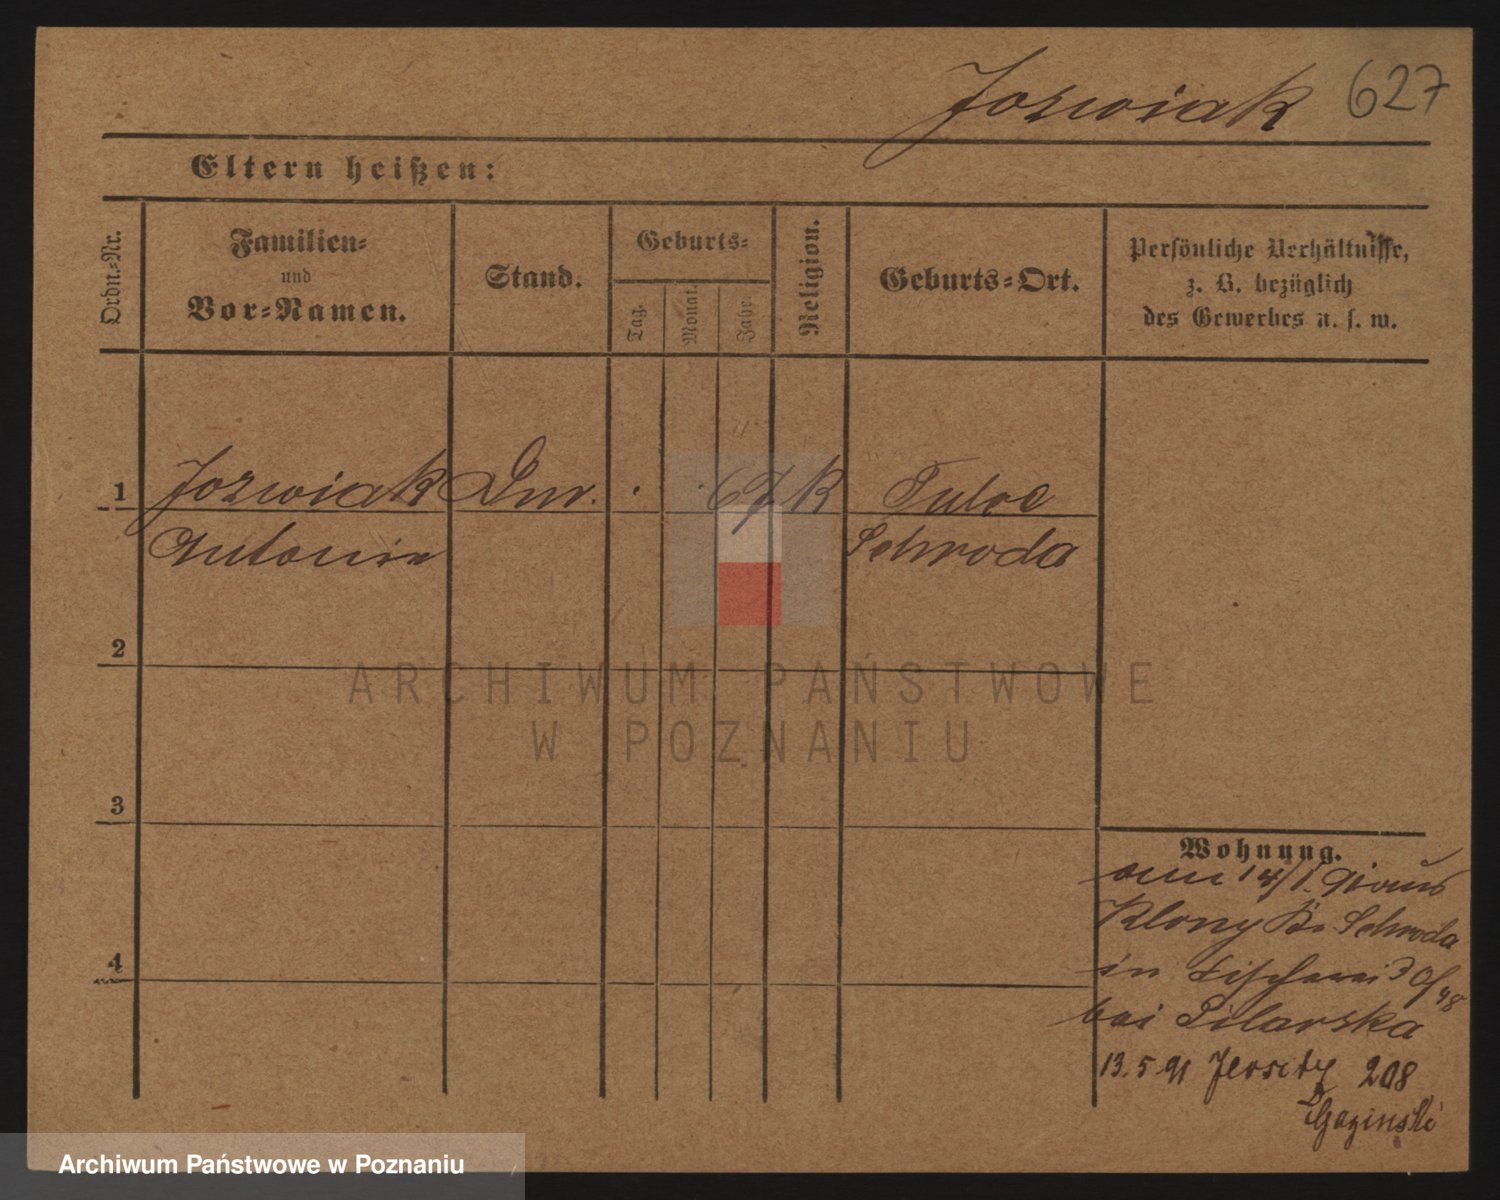 Jozwiak 627
Eltern heißen:
Ordn.-Nr.
Familien-
und
Vor-Namen.
Stand.
Geburts-
Tag.
Monat.
Jahr.
Religion.
Geburts-Ort.
Persönliche Verhältnisse,
z. B. bezüglich
des Gewerbes u. s. w.
1 Jozwiak 67 K Tulce
Antonie Schroda
2
ARCHIWUM PAŃSTWOWE
W POZNANIU
3
4
Wohnung.
am 14/1. 91 aus
Klony Kr. Schroda
in Fischerei
bei Pilarska
13.5.91 Jersitz 208
Archiwum Państwowe w Poznaniu